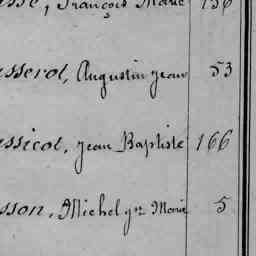 asse, François Marie 156
asserot, Augustin Jean 53
assicot, Jean Baptiste 166
sson, Michel Marie 5